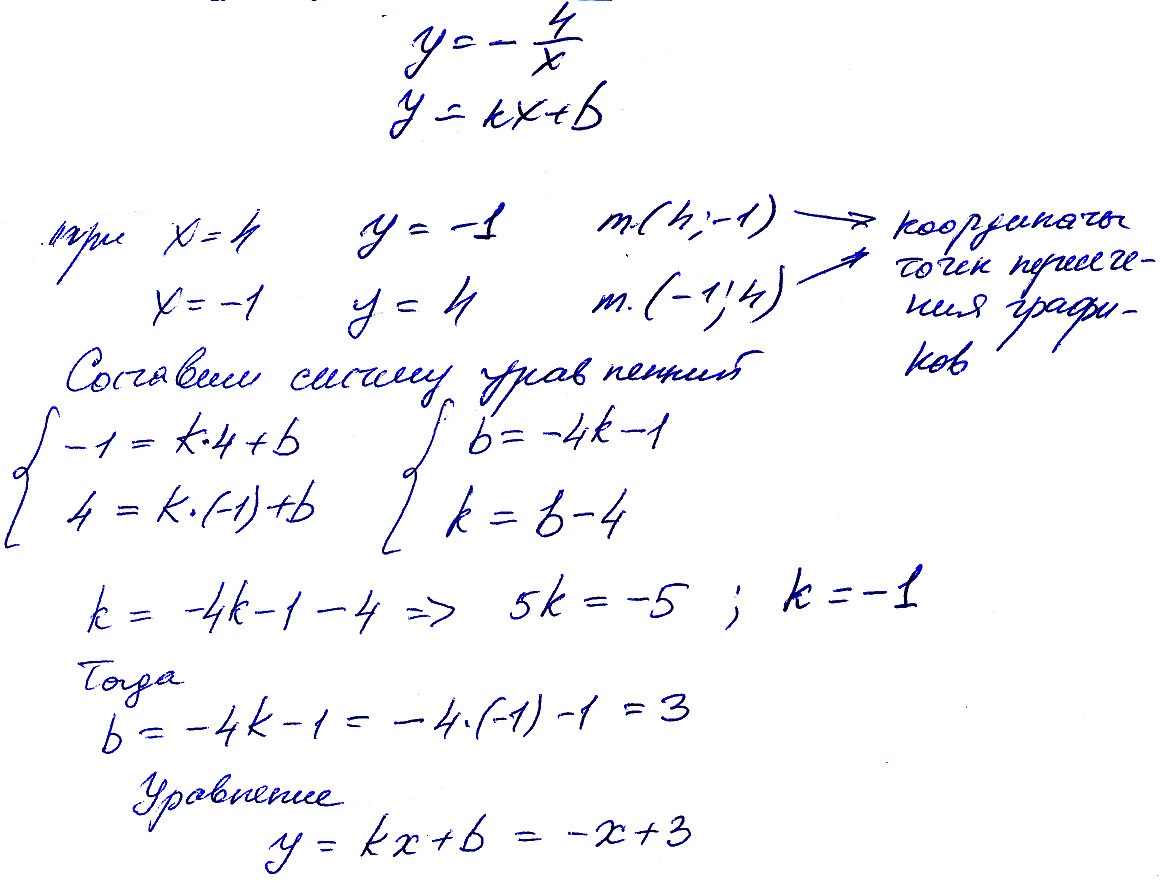 y = - 4/x
y = kx+b
при x = 4 y = -1 т.(4;-1) координаты
x = -1 y = 4 т.(-1;4) точек пересече-
ния графи-
ков
Составим систему уравнений
-1 = k·4+b b = -4k-1
4 = k·(-1)+b k = b-4
k = -4k-1-4 => 5k = -5 ; k = -1
Тогда
b = -4k-1 = -4·(-1)-1 = 3
Уравнение
y = kx+b = -x+3